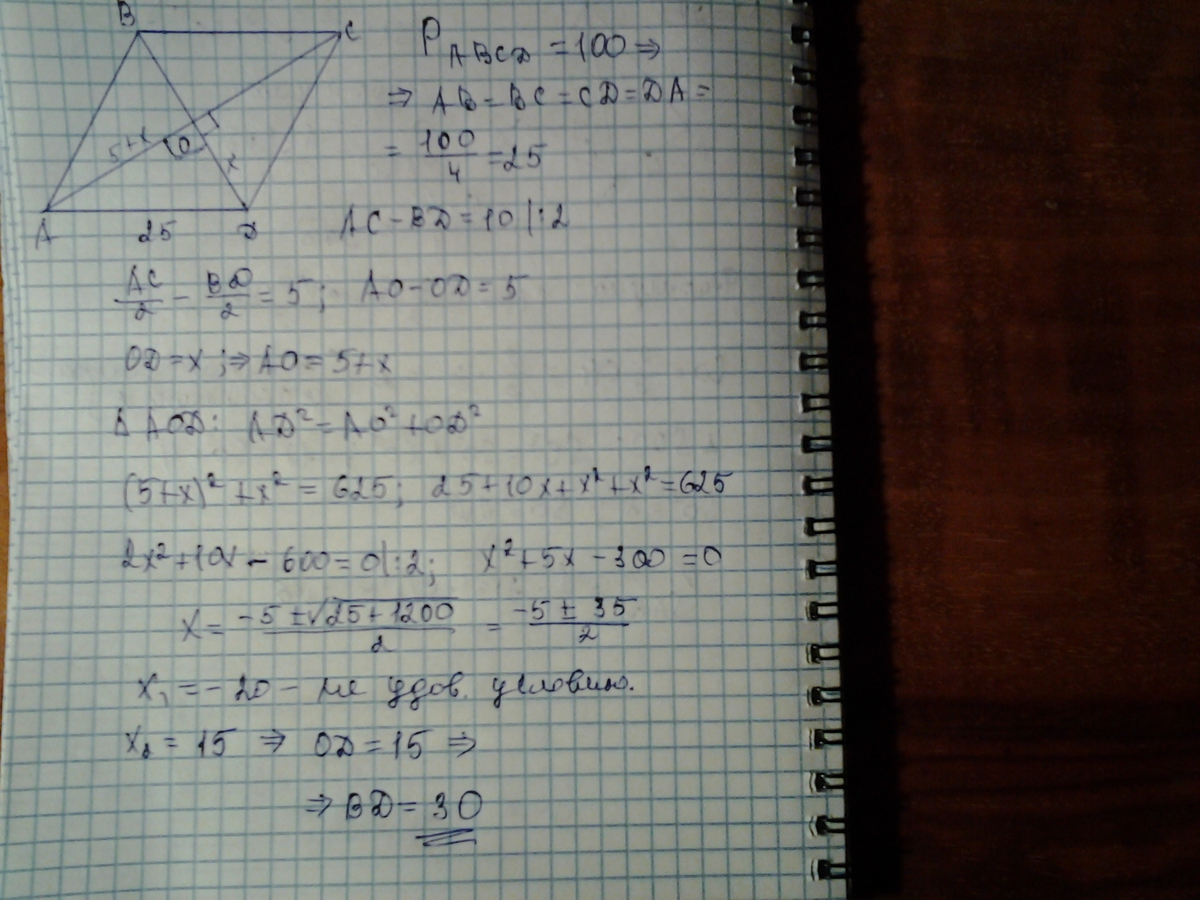 B
C
5+x
O
x
A
25
D
P ABCD = 100 ⇒
⇒ AB = BC = CD = DA =
= 100/4 = 25
AC - BD = 10 |:2
AC/2 - BD/2 = 5; AO - OD = 5
OD = x; ⇒ AO = 5+x
Δ AOD: AD² = AO² + OD²
(5+x)² + x² = 625; 25+10x+x²+x² = 625
2x²+10x - 600 = 0 |:2; x² + 5x - 300 = 0
x = (-5 ± √25+1200)/2 = (-5 ± 35)/2
x₁ = -20 - не удов. условию.
x₂ = 15 ⇒ OD = 15 ⇒
⇒ BD = 30